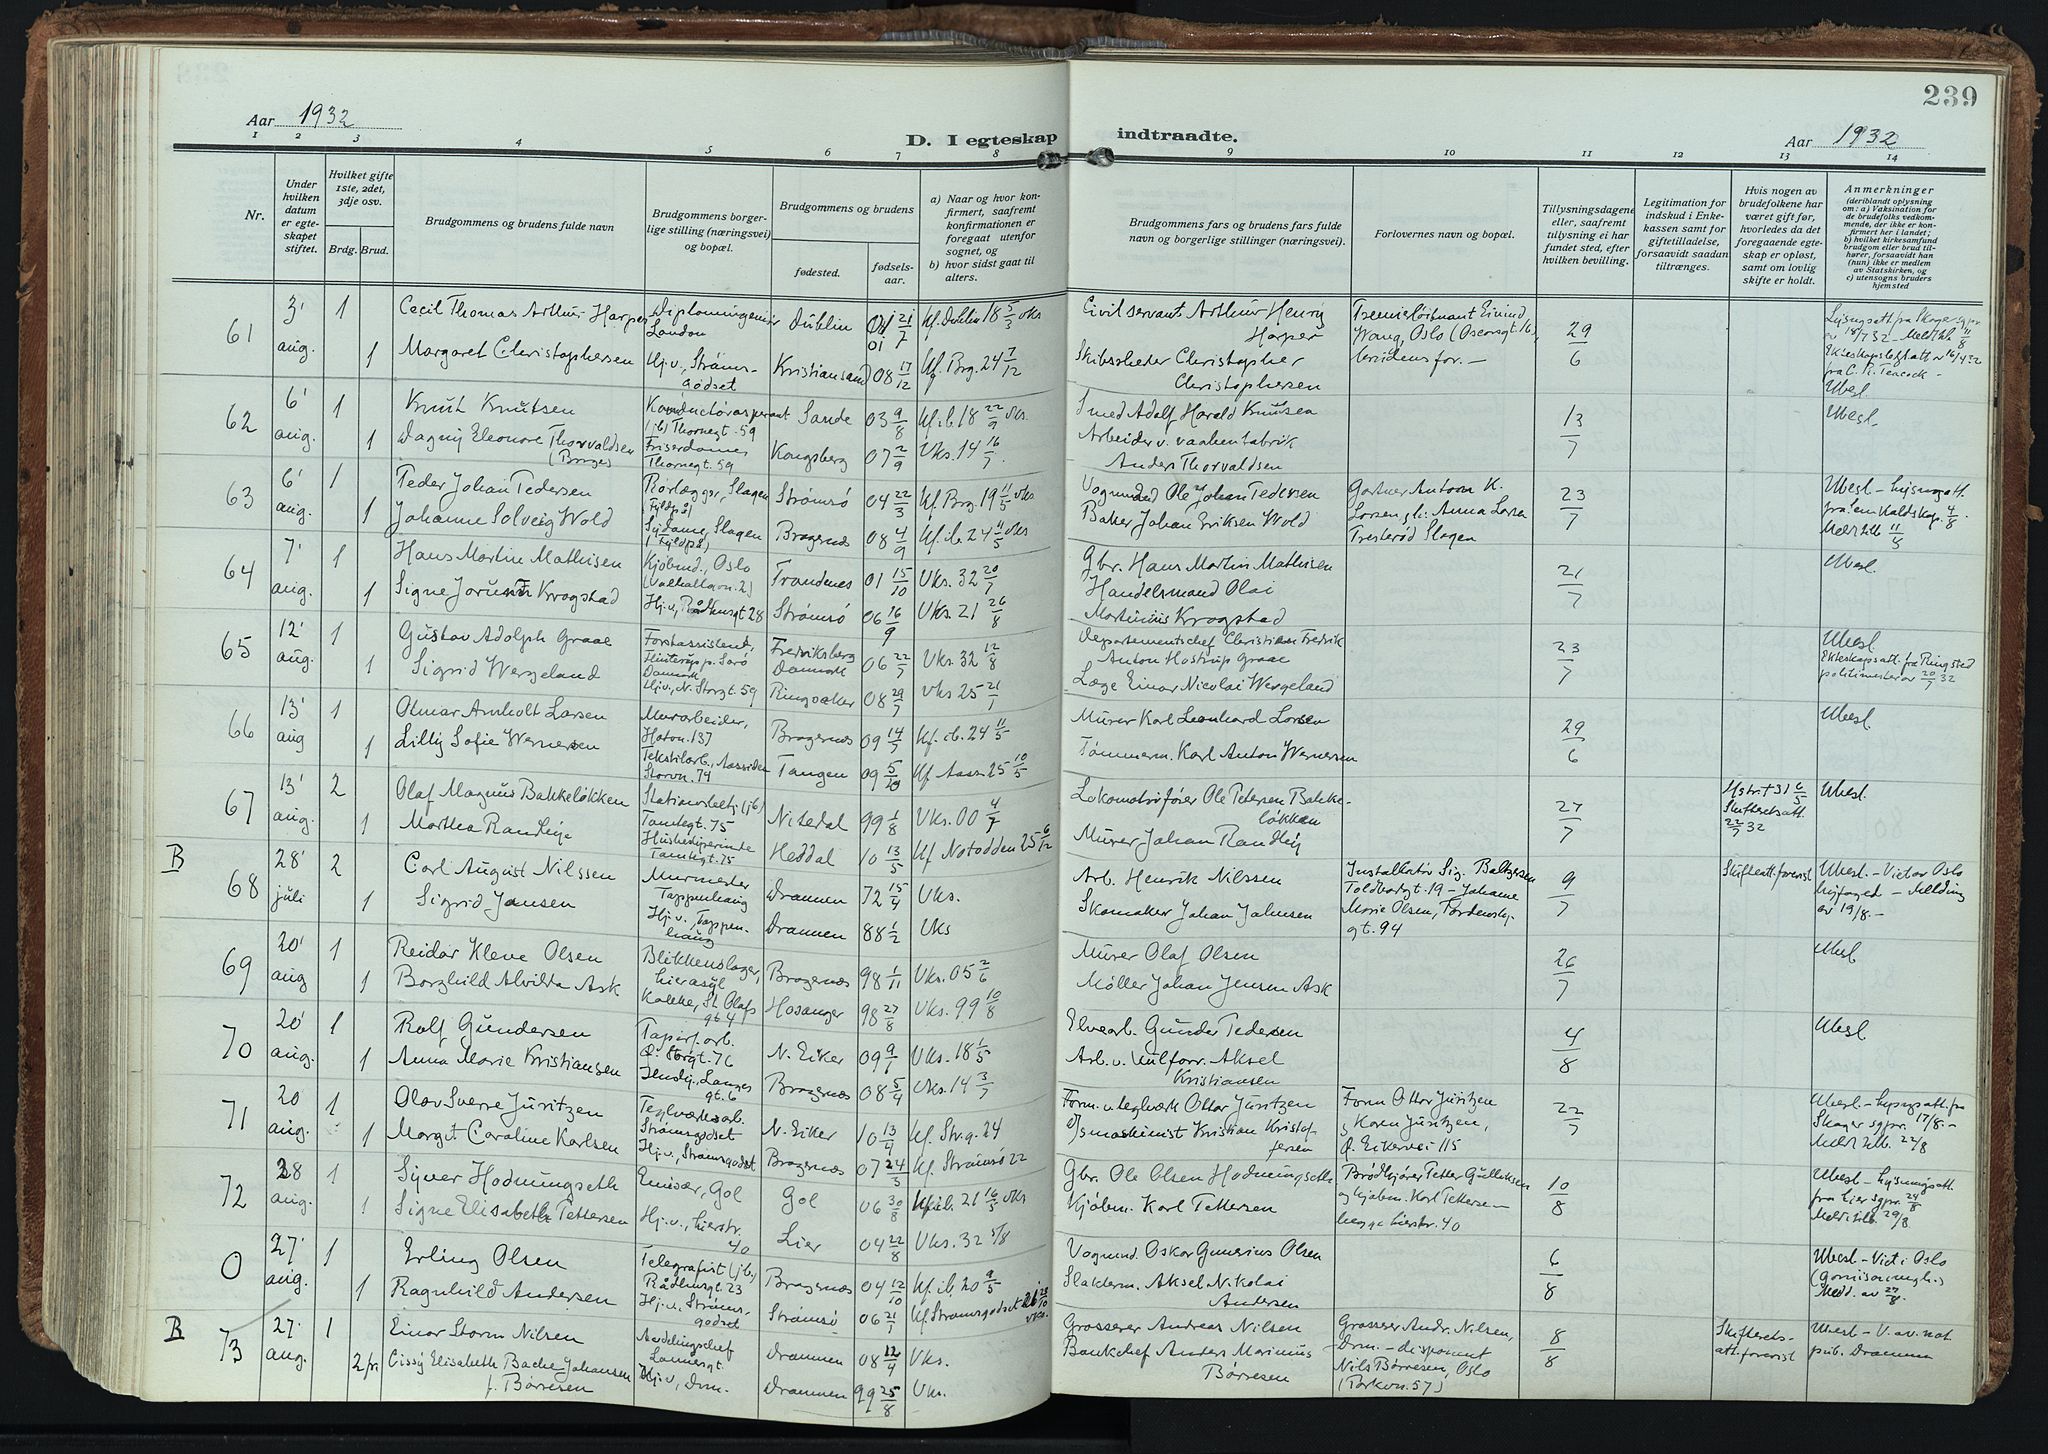 239
Aar 1932
D. I egteskap indtraadte.
Aar 1932
1 2 3 4 5 6 7 8 9 10 11 12 13 14
Nr.
Under hvilken datum er egteskapet stiftet.
Hvilket gifte 1ste, 2det, 3dje osv.
Brdg. Brud.
Brudgommens og brudens fulde navn
Brudgommens borgerlige stilling (næringsvei) og bopæl.
Brudgommens og brudens
fødested.
fødselsaar.
a) Naar og hvor konfirmert, saafremt konfirmationen er foregaat utenfor sognet, og
b) hvor sidst gaat til alters.
Brudgommens fars og brudens fars fulde navn og borgerlige stillinger (næringsvei).
Forlovernes navn og bopæl.
Tillysningsdagene eller, saafremt tillysning ei har fundet sted, efter hvilken bevilling.
Legitimation for indskud i Enkekassen samt for giftetilladelse, forsaavidt saadan tiltrænges.
Hvis nogen av brudefolkene har været gift før, hvorledes da det foregaaende egteskap er opløst, samt om lovlig skifte er holdt.
Anmerkninger
(deriblandt oplysning om: a) Vaksination for de brudefolks vedkommende, der ikke er konfirmert her i landet; b) hvilket kirkesamfund brudgom eller brud tilhører, forsaavidt han (hun) ikke er medlem av Statskirken, og c) utensogns bruders hjemsted
61 3' aug. 1 Cecil Thomas Arthur Harper London Dublin 21/7 Kf. Dublin 18 5/3 vks Civil servant Arthur Henry Harper Premierløitnant Eivind Wang, Oslo 29/6
1 Margaret Christophersen Hj.v., Strømsgodset Kristiansand 08 17/12 Kf. Brg. 24 7/12 Skibsreder Christopher Christophersen brudens far. — Ubesl.
62 6' aug. 1 Knut Knutsen Konduktøraspirant (jb) Thornegt. 59 Sande 03 9/8 Kf. ib. 18 22/9 vks. Smed Adolf Harald Knutsen 13/7 Ubesl.
1 Dagny Eleonore Thorvaldsen Friserdame Thornegt. 59 Kongsberg 07 2/9 Vks. 14 16/7 Arbeider v. vaabenfabrik Anders Thorvaldsen
63 6' aug. 1 Peder Johan Pedersen Rørlægger, Slagen Strømsø 04 22/3 Kf. Brg. 19 11/5 vks Vognmand Ole Johan Pedersen Gartner Anton K. Larsen 23/7 Ubesl. — Lysngsatt.
1 Johanne Solveig Wold Sydame, Slagen Bragernes 08 4/9 Kf. ib. 24 11/5 vks Baker Johan Eriksen Wold Anna Larsen Presterød Slagen
64 7' aug. 1 Hans Martin Mathisen Kjøbmd., Oslo Trondenes 01 15/10 Vks. 32 20/7 Gbr. Hans Martin Mathisen 21/7 Ubesl.
1 Signe Jorunn Krogstad Hj.v., Rådhusgt 28 Strømsø 06 16/9 Vks. 21 26/8 Handelsmand Olai Martinius Krogstad
65 12' aug. 1 Gustav Adolph Graae Forstassistent, p. Sorø Danmark Fredriksberg Danmark 06 22/7 Vks. 32 12/8 Departementschef Christian Fredrik Anton Hostrup Graae 23/7 Ubesl
1 Sigrid Wergeland Hj.v., N. Storgt. 59 Ringsaker 08 29/7 vks 25 21/7 Læge Einar Nicolai Wergeland Ekteskapsatt. fra Ringsted politimester av 20/7 32
66 13' aug 1 Olmar Arnholt Larsen Murarbeider, Bragernes 09 14/7 Kf. ib. 24 11/5 Murer Karl Leonhard Larsen 29/6 Ubesl.
1 Lilly Sofie Wernersen Tekstilarb., Aassiden Storvn. 74 Tangen 09 Kf. Aass. 25 10/5 Tømmerm. Karl Anton Wernersen
67 13' aug. 2 Olaf Magnus Bakkeløkken Tomtegt. 75 Nitedal 99 1/8 Vks. 00 4/7 Lokomotivfører Ole Petersen Bakkeløkken 27/7 Skifteretsatt. 22/7 32 Ubesl.
1 Martha Ranheje Husbestyrerinde Tomtegt. 75 Heddal 10 13/5 Kf Notodden 25 6/12 Murer Johan
B
68 28' juli 2 Carl August Nilssen Murmester Tappenhaug Drammen 72 15/4 Vks. Arb. Henrik Nilssen Installatør Sig. Baltzersen Toldbodgt. 19 — Johanne Marie Olsen, Tordenskj. gt. 94 9/7 Skifteatt. forevist Ubesl. — Viet av Oslo byfoged — Melding av 19/8. —
1 Sigrid Jansen Hj.v. Tappenhaug Drammen 88 1/2 Vks Skomaker Johan Johnsen
69 20' aug 1 Reidar Kleve Olsen Blikkenslager, Bragernes 98 1/11 Vks. 05 2/6 Murer Olaf Olsen 26/7 Ubesl
1 Borghild Alvilda Ask Kokke, St. Olafs gt 41 Hosanger 98 27/8 Vks. 99 10/8 Møller Johan Jensen Ask
70 20' aug. 1 Rolf Gundersen Papirf. arb. Ø. Storgt. 76 N. Eiker 09 9/7 Vks. 18 1/5 Elvearb. Gunder Pedersen 4/8 Ubesl
1 Anna Marie Kristiansen Langes gt. 6 Bragernes 08 5/4 Vks. 14 3/7 Arb. v. Aksel Kristiansen
71 20 aug. 1 Olav Sverre Juritzen Teglverksarb. Strømsgodset N. Eiker 10 13/4 Kf. Str.g. 24 Form. v. teglverk Ottar Juritzen Form Ottar Juritzen 22/7 Ubesl — Lysngsatt. fra Skoger sgpr. 17/8. —
1 Margit Caroline Karlsen Hj.v., Strømsgodset Bragernes 07 24/3 Kf. Strømsø 22 Kristian Kristoffersen Karen Juritzen, Ø. Eikervei 115 22/8
72 28 aug. 1 Syver Hodnungseth Emisær, Gol Gol 06 30/8 Kf. ib. 21 16/5 vks Gbr. Ole Olsen Hodnungseth Brødkjører Petter Gulliksen 10/8 Ubesl — Lysningsatt. fra Lier sgpr. 24/8
1 Signe Elisabeth Pettersen Hj.v., Lierstr. 40 Lier 04 22/8 Vks. 32 5/8 Kjøbm. Karl Pettersen og kjøbm. Karl Pettersen — begge Lierstr. 40 29/8
0 27' aug. 1 Erling Olsen Telegrafist (jb.) Rådhusgt. 23 Bragernes 04 12/10 Kf. ib. 20 9/5 Vognmd. Oskar Gunerius Olsen 6/8 Ubesl — Viet i Oslo
1 Ragnhild Andersen Hj.v., Strømsgodset Strømsø 06 21/7 Kf. Strømsgodset vks. Slakterm. Aksel Nikolai Andersen Medd. av 27/8.
B
73 27' aug. 1 Einar Storm Nilsen Avdelingschef Drammen 08 12/4 Vks. Grosserer Andreas Nilsen Grosserer Andr. Nilsen, Drm. — disponent 8/8 Skifteretsatt. forevist Ubesl — V. av not. pub. Drammen
2 fr. Cissy Elisabeth Bache Johansen f. Børresen Hj.v., Drm. Drammen 99 25/8 Vks. Bankchef Anders Marinius Børresen Nils Børresen, Oslo (Parkvn. 57)